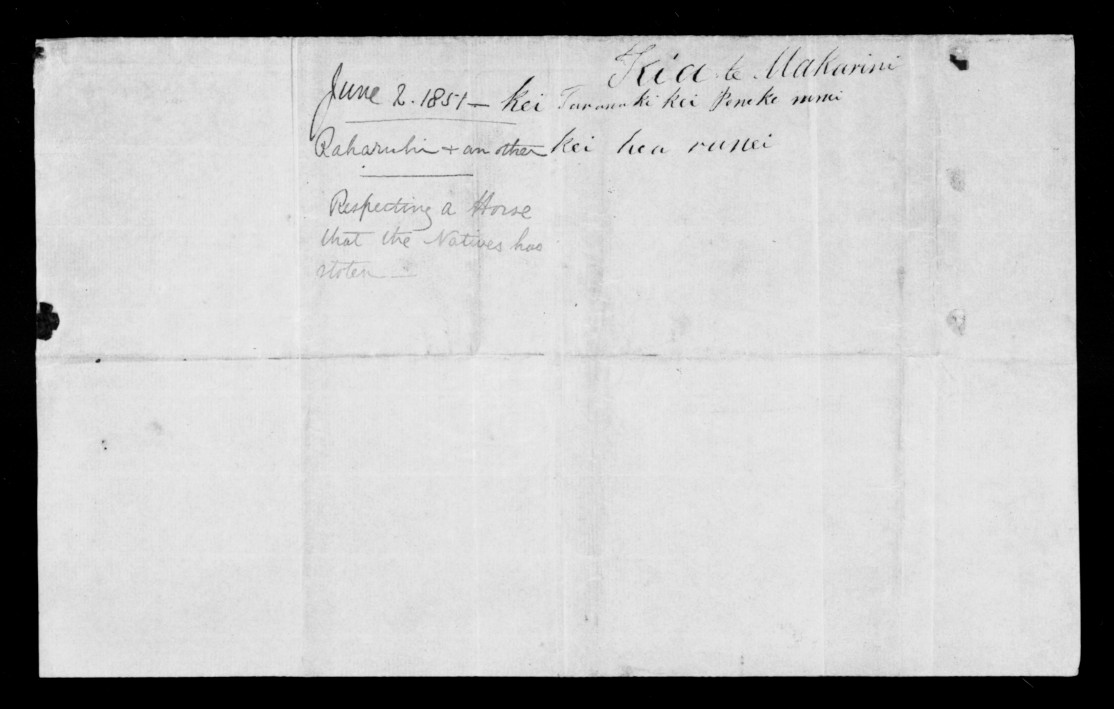 Kia te Makarini
June 2. 1851 — kei Taranaki kei Poneke ranei
Raharuhi + another kei hea ranei
Respecting a Horse
that the Natives has
stolen —